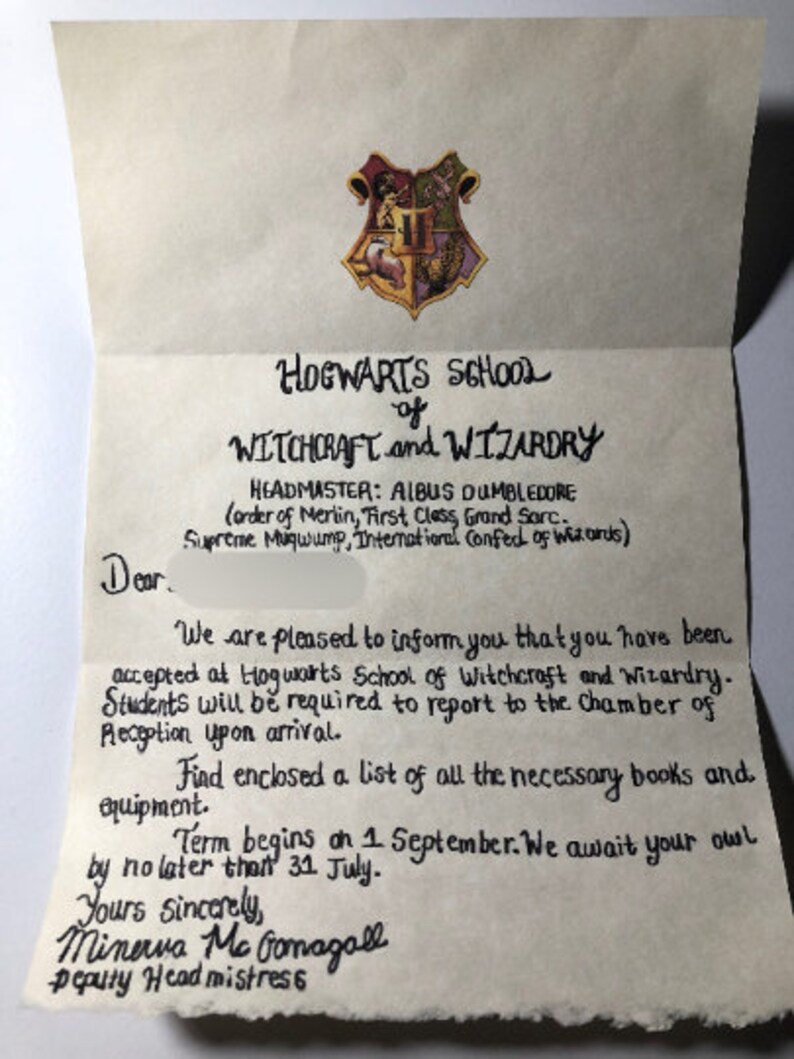 H
HOGWARTS SCHOOL
of
WITCHCRAFT and WIZARDRY
HEADMASTER: AlBUS DUMBLEDORE
(order of Merlin, First Class, Grand Sorc.
Supreme Mugwump, International Confed of Wizards)
Dear
We are pleased to inform you that you have been
accepted at Hogwarts School of Witchcraft and Wizardry.
Students will be required to report to the Chamber of
Reception upon arrival.
Find enclosed a list of all the necessary books and
equipment.
Term begins on 1 September. We await your owl
by no later than 31 July.
Yours sincerely,
Minerva McGonagall
Deputy Headmistress